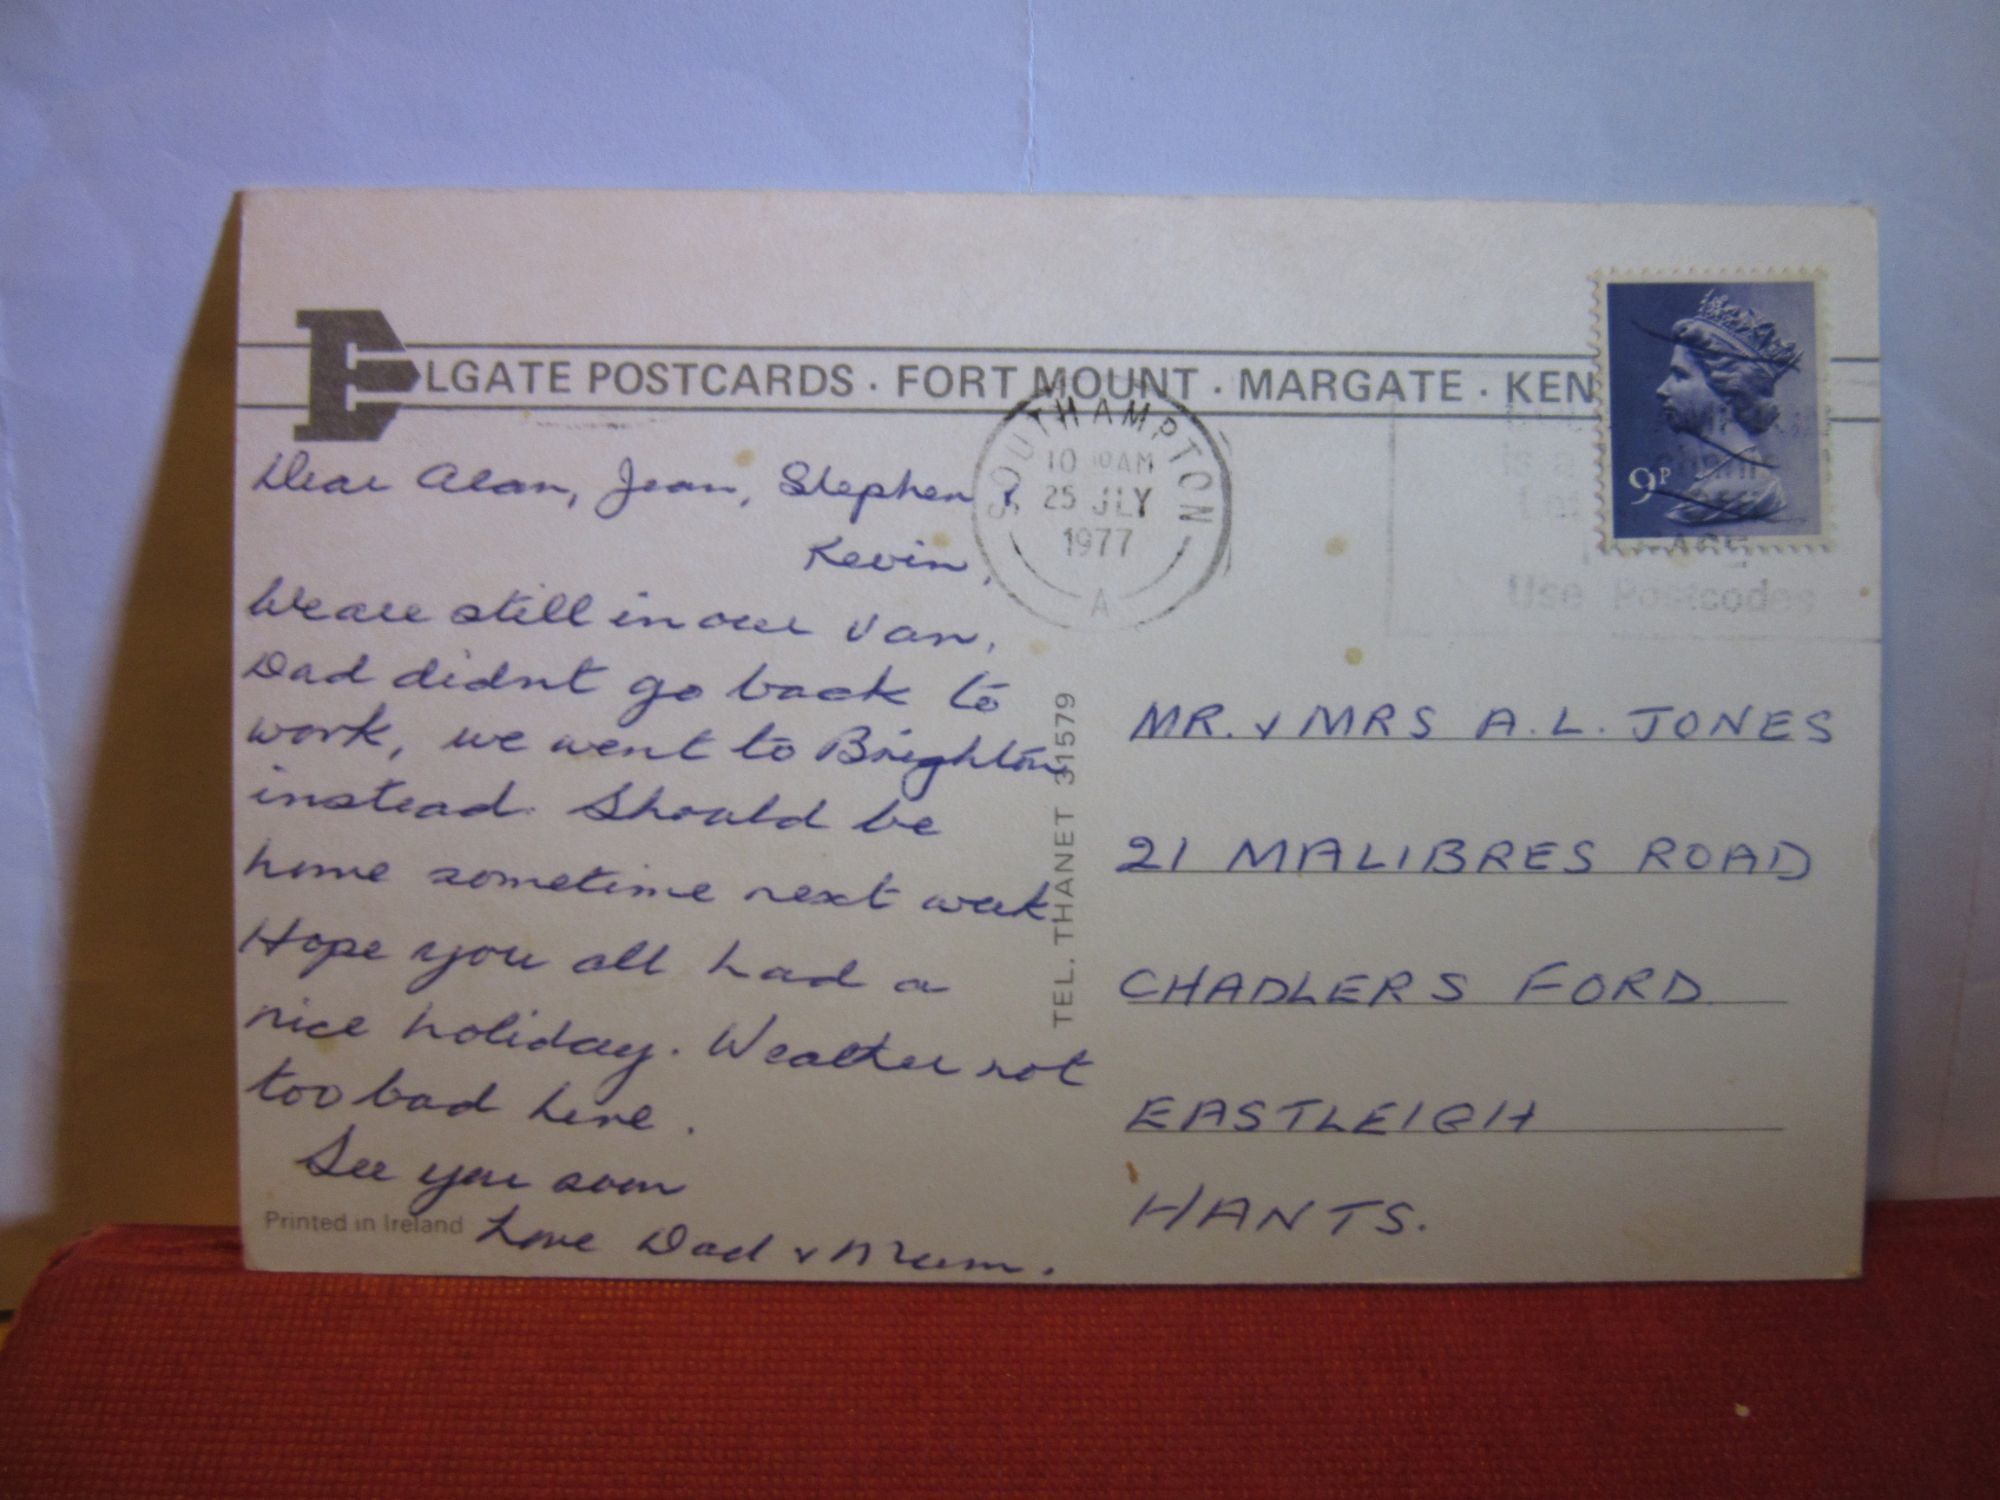 ELGATE POSTCARDS · FORT MOUNT · MARGATE · KEN
SOUTHAMPTON
10 10AM
25 JLY
1977
A
9P
is a
Use Postcodes
Dear Alan, Jean, Stephen &
Kevin,
We are still in our van,
Dad didnt go back to
work, we went to Brighton
instead. Should be
home sometime next week
Hope you all had a
nice holiday. Weather not
too bad here.
See you soon
Love Dad & Mum.
Printed in Ireland
TEL. THANET 31579
MR. & MRS A.L. JONES
21 MALIBRES ROAD
CHADLERS FORD
EASTLEIGH
HANTS.